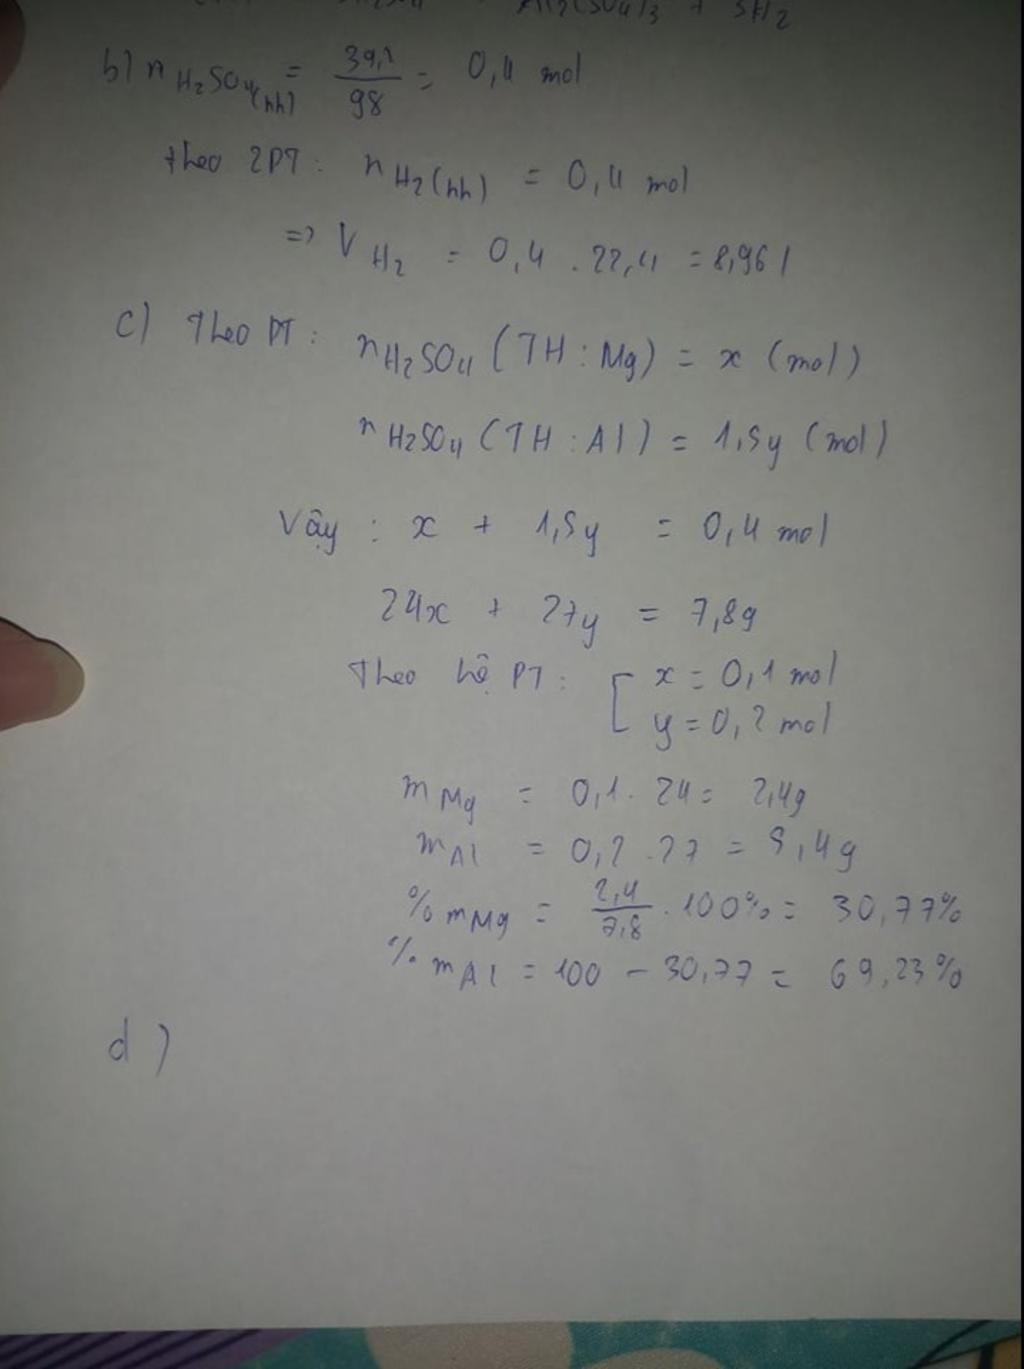 Al2(SO4)3 + 3H2
b) n H2SO4(hh) = 39,2/98 = 0,4 mol
theo 2PT: n H2(hh) = 0,4 mol
=> V H2 = 0,4 . 22,4 = 8,96 l
c) Theo PT: n H2SO4 (TH: Mg) = x (mol)
n H2SO4 (TH: Al) = 1,5y (mol)
Vậy : x + 1,5y = 0,4 mol
24x + 27y = 7,8g
Theo hệ PT: [ x = 0,1 mol
y = 0,2 mol
m Mg = 0,1 . 24 = 2,4g
m Al = 0,2 . 27 = 5,4g
% m Mg = 2,4/7,8 . 100% = 30,77%
% m Al = 100 - 30,77 = 69,23%
d)